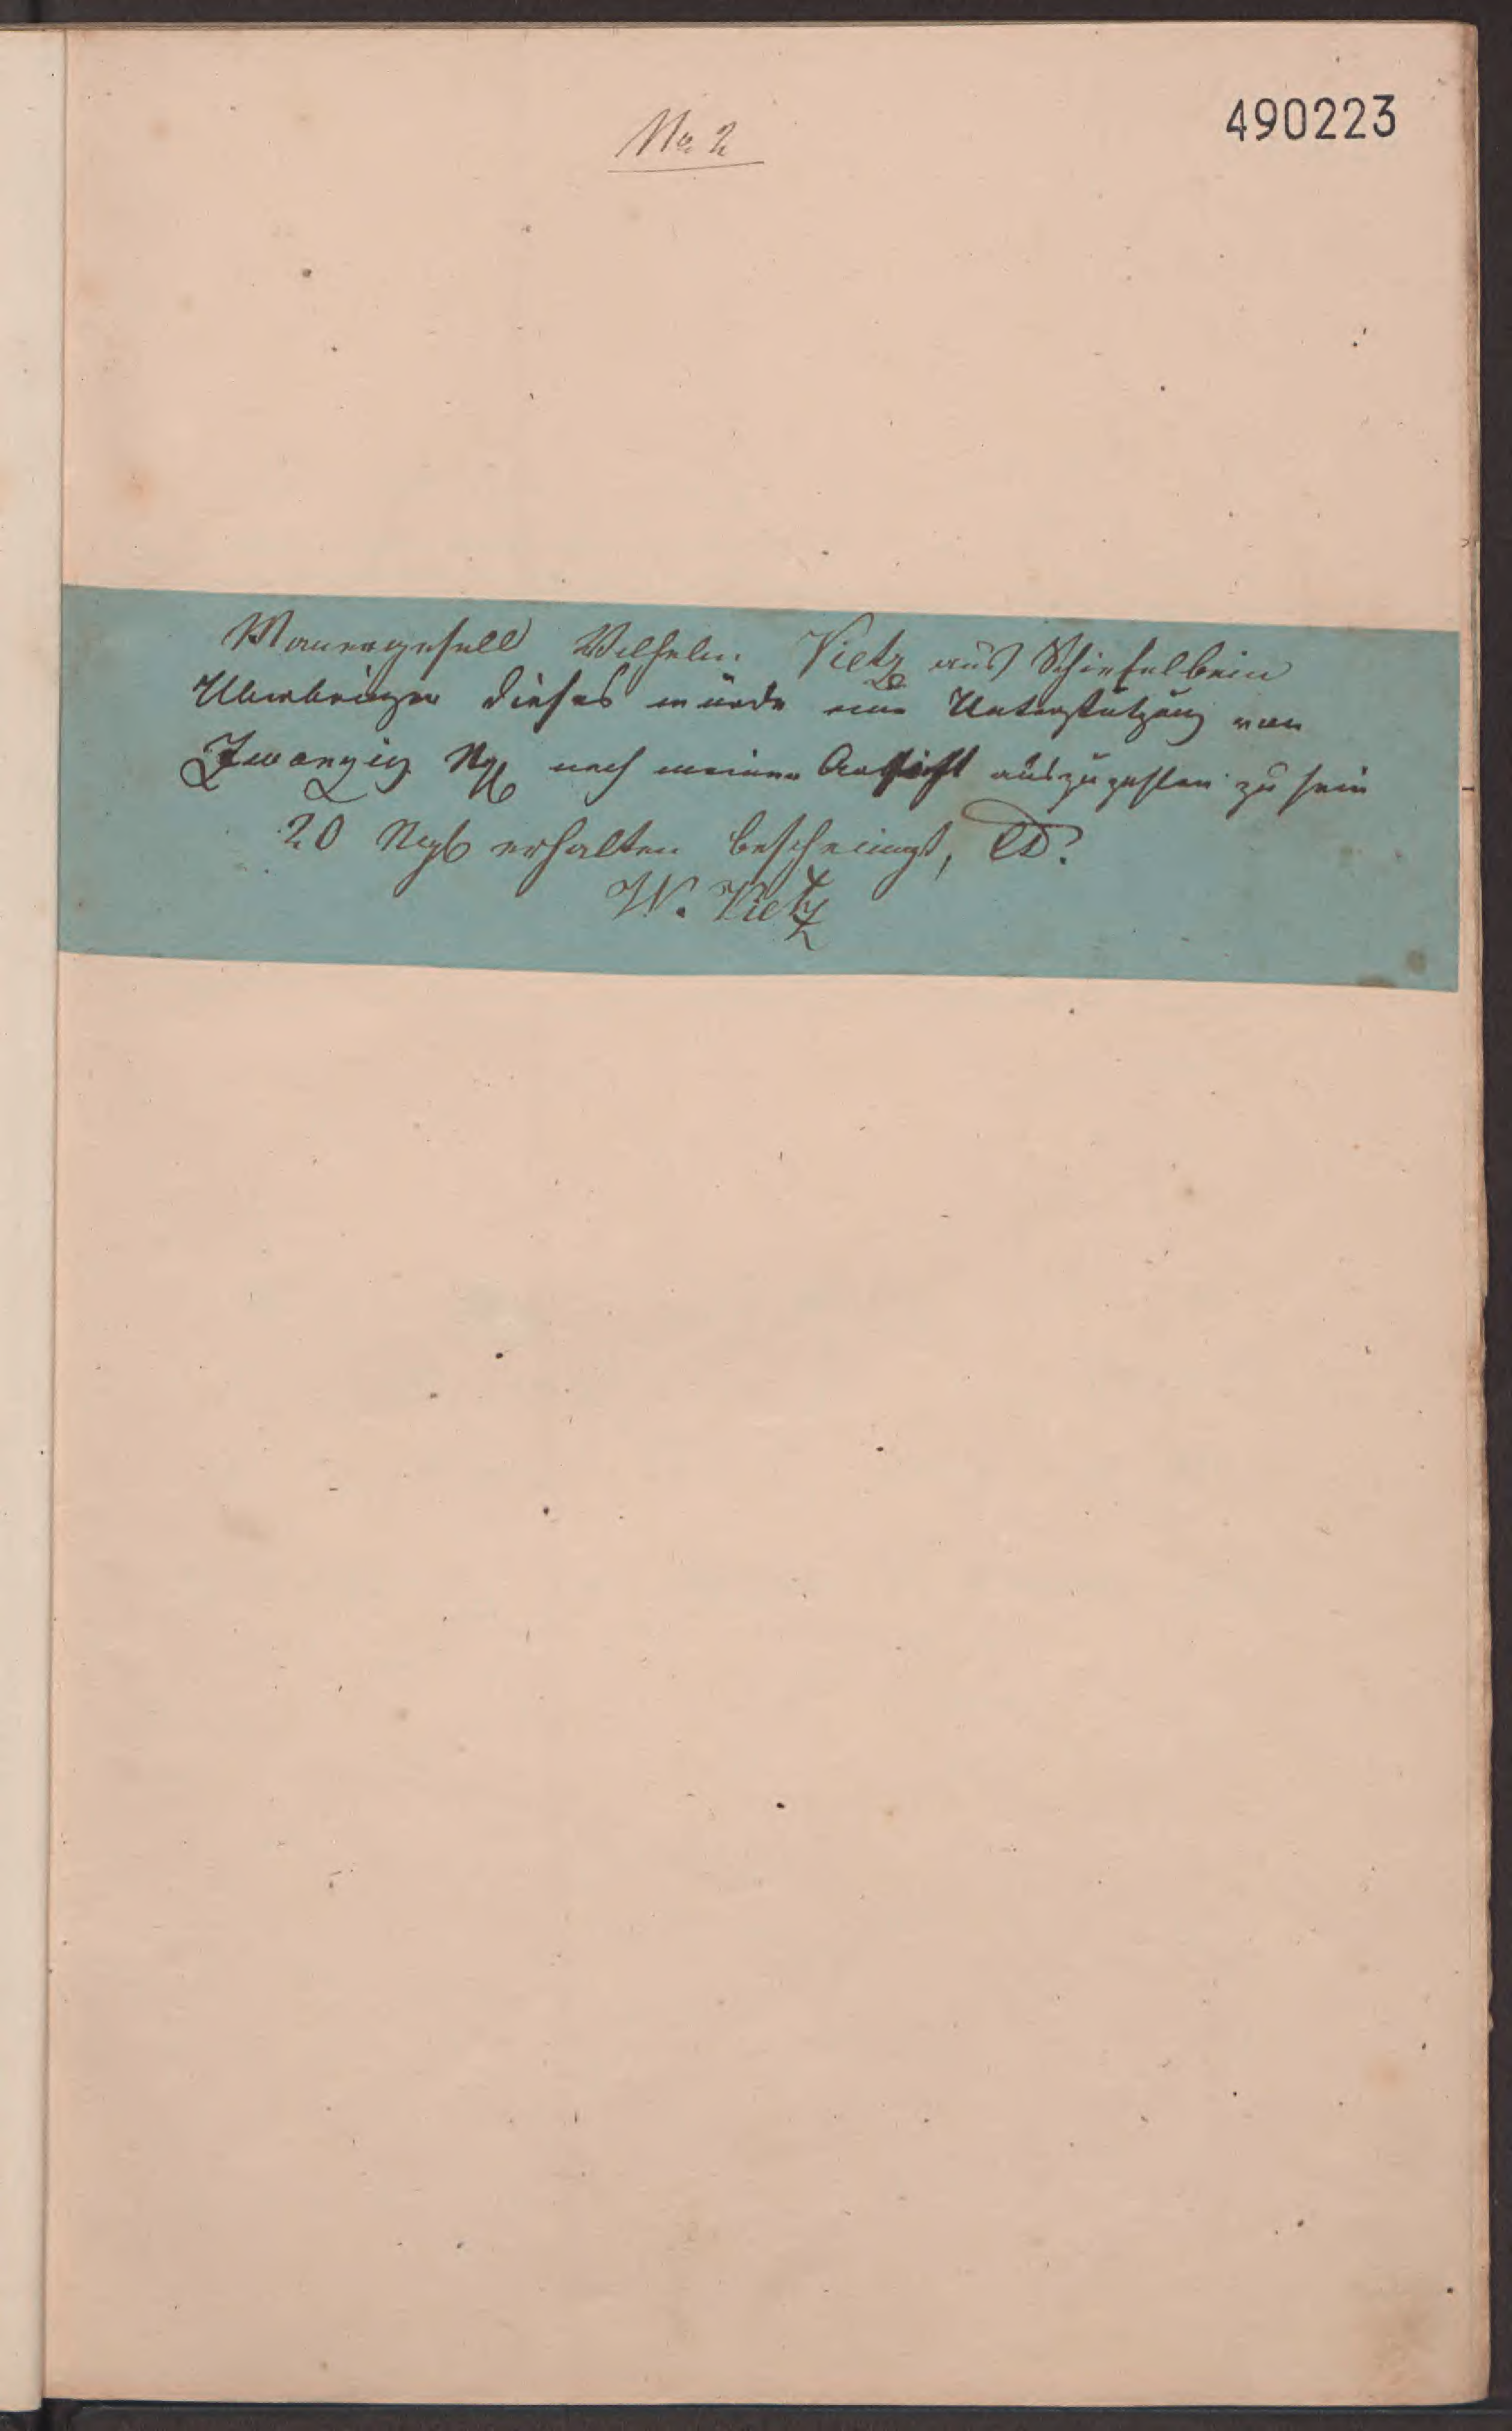 No 2
490223
Maurergesell Wilhelm Vietz aus Schiefelbein
Uberbringer dieses würde eine Unterstützung von
Zwanzig Ngl nach meiner Ansicht auszuzahlen zu sein
20 Ngl erhalten bescheinigt,
W. Vietz